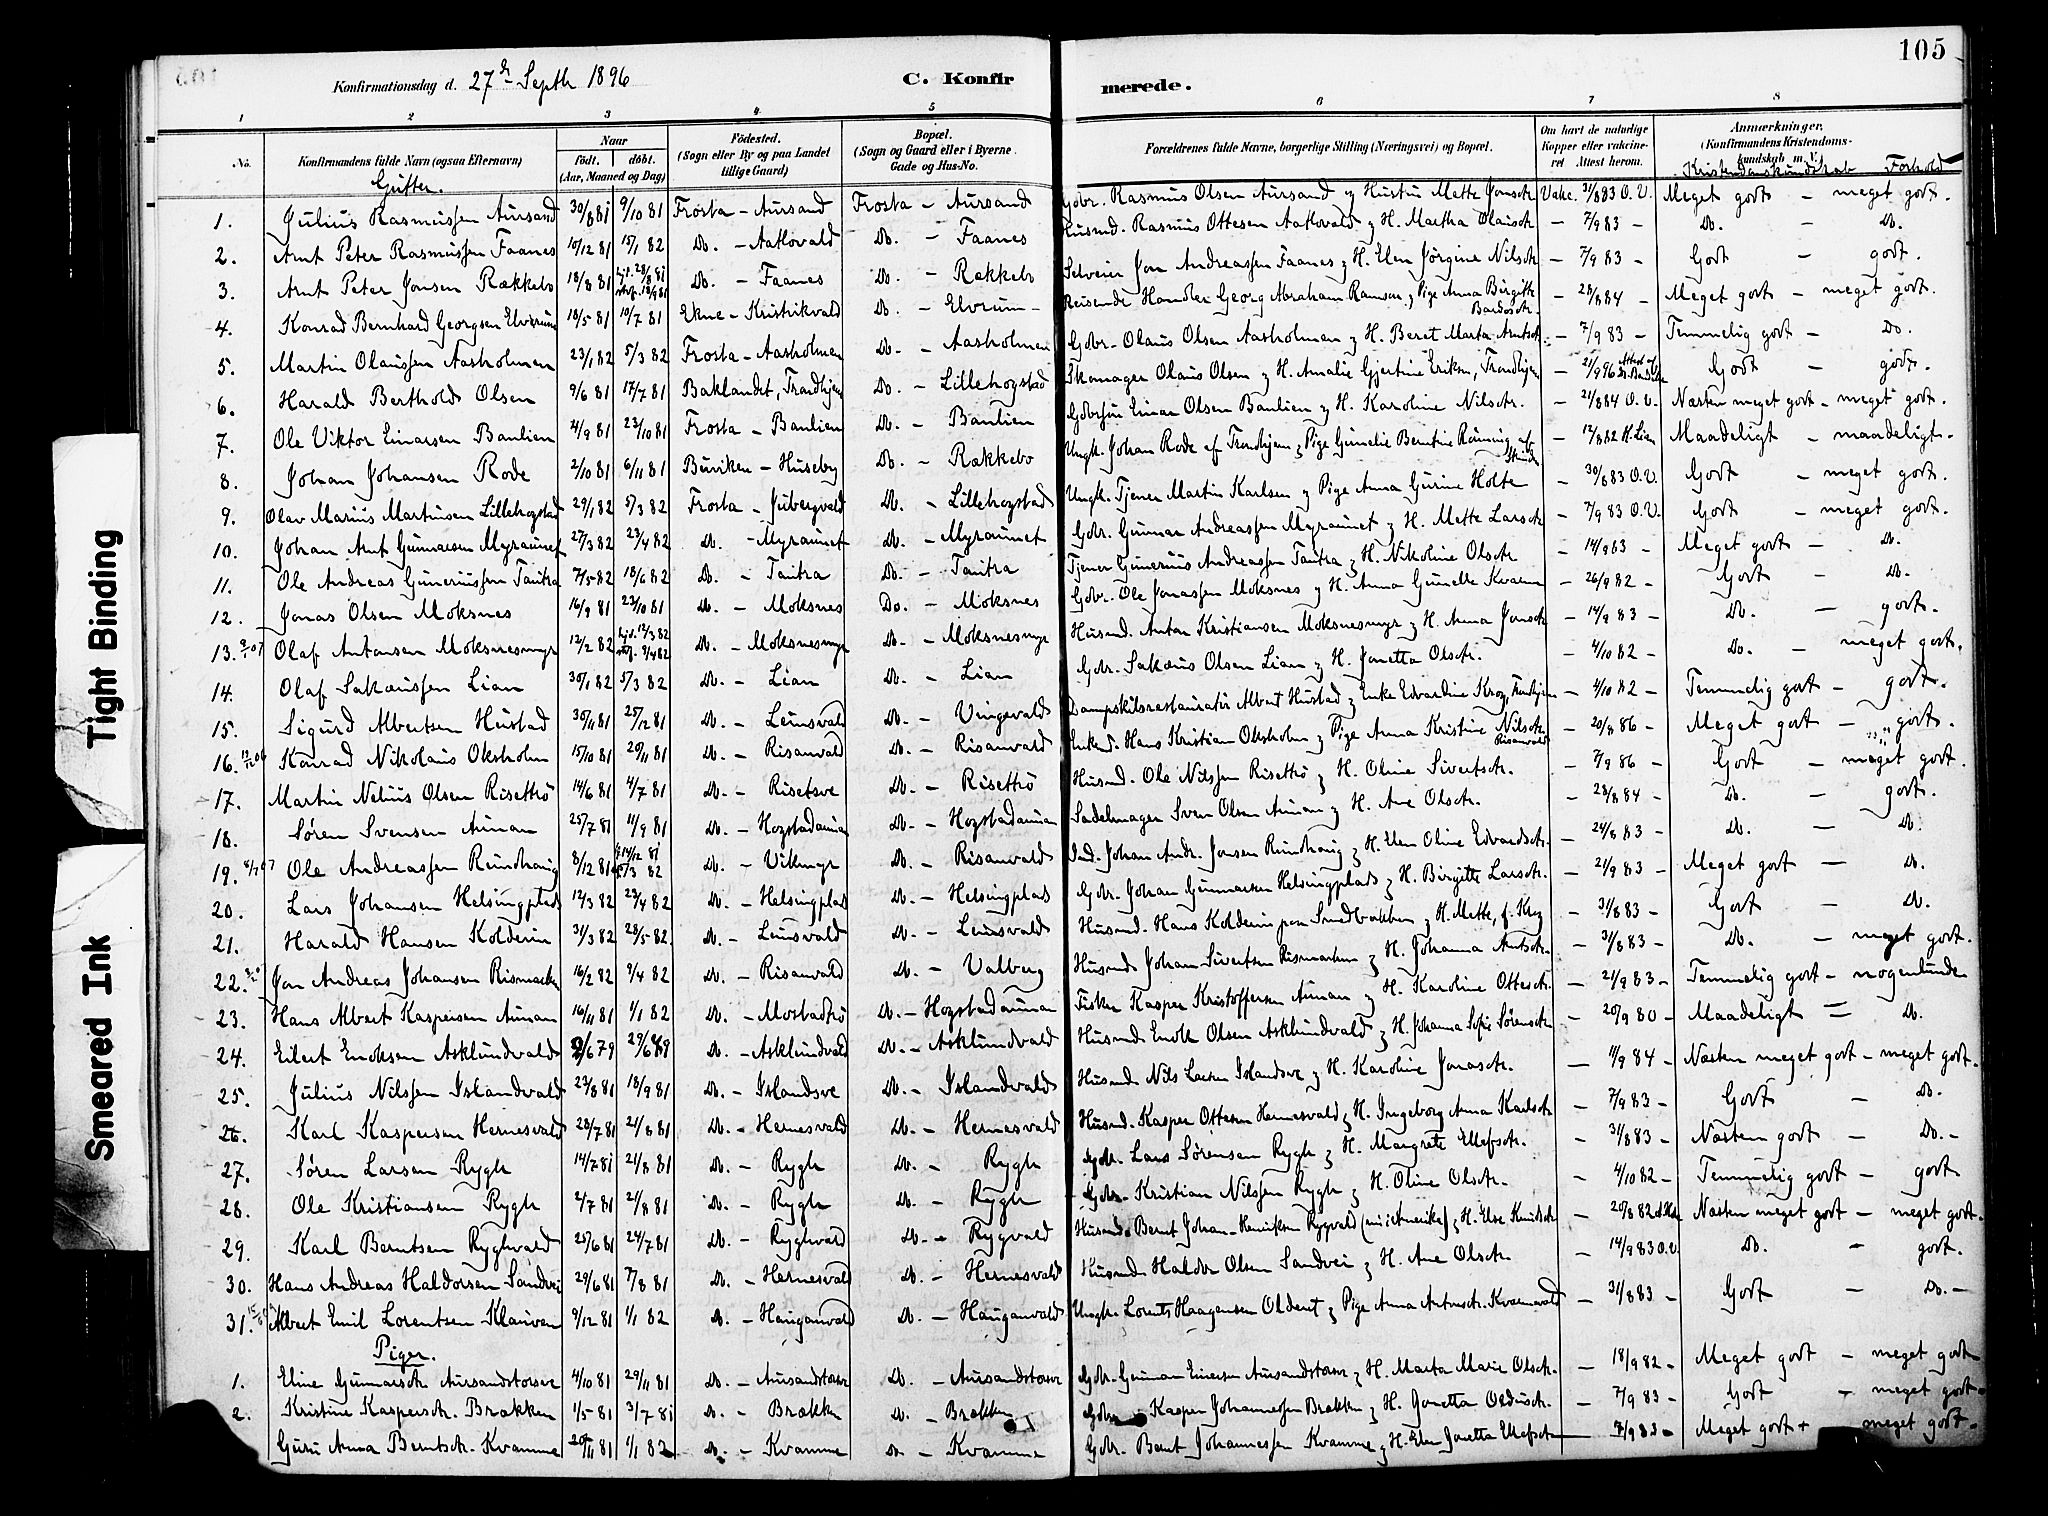 105
Konfirmationsdag d. 27de Septb 1896
C. Konfirmerede.
1 2 3 4 5 6 7 8
No.
Konfirmandens fulde Navn (ogsaa Efternavn)
Naar
født. døbt.
(Aar, Maaned og Dag)
Fødested.
(Sogn eller By og paa Landet tillige Gaard)
Bopæl.
(Sogn og Gaard eller i Byerne Gade og Hus-No.
Forældrenes fulde Navne, borgerlige Stilling (Næringsvei) og Bopæl.
Om havt de naturlige Kopper eller vaccineret Attest herom.
Anmærkninger.
(Konfirmandens Kristendomskundskab m. V.
Kristendomskundskab Forhold
Gutter.
1. Julius Rasmussen Aursand 30/8 81 9/10 81 Frosta - Aursand Frosta - Aursand Gdbr. Rasmus Olsen Aursand og Hustru Mette Jonsdtr Vakc. 31/8 83 O.V. Meget godt - meget godt.
2. Arnt Peter Rasmussen Faanes 10/12 81 15/1 82 Do. - Aatlovald Do. - Faanes Husmd. Rasmus Ottesen Aatlovald og H. Martha Olausdtr - 7/9 83 - Do. - Do.
3. Arnt Peter Jonsen Rækkebo 18/8 81 Hjd. 28/8 81 18/9 81 Do. - Faanes Do. - Rækkebo Selveier Jon Andreassen Faanes og H. Elen Jørgine Nilsdtr - 7/9 83 - Godt - godt.
4. Konrad Bernhard Georgsen Elvrum 18/5 81 10/7 81 Ekne - Kristrikvald Do. - Elvrum - Reisende Handler Georg Abraham Ramsøe, og Pige Anna Birgitte Bardosdtr. - 28/8 84 - Meget godt - meget godt.
5. Martin Olaussen Aasholmen 23/1 82 5/3 82 Frosta - Aasholmen Do. - Aasholmen Gdbr. Olaus Olsen Aasholmen og H. Beret Marta Arntsdtr. - 7/9 83 - Temmelig godt - Do.
6. Harald Berthold Olsen 9/6 81 17/7 81 Baklandet, Trondhjem Do. - Lillehogstad Skomager Olaus Olsen og H. Amalie Gjertine Eriksen, Trondhjem - 21/9 96 Attest af Godt - godt.
7. Ole Viktor Einarsen Banlien 4/9 81 23/10 81 Frosta - Banlien Do. - Banlien Gdbrsøn Einar Olsen Banlien og H. Karoline Nilsdtr. - 21/8 84 O.V. Næsten meget godt - meget godt.
8. Johan Johansen Rode 2/10 81 6/11 81 Buviken - Huseby Do. - Rækkebo Ungk. Johan Rode af Trondhjem og Pige Gunelie Berntine Rønning af Strinda - 12/8 82 K. Lien Maadeligt - maadeligt.
9. Olav Marius Martinsen Lillehogstad 29/1 82 5/3 82 Frosta - Jubergvald Do. - Lillehogstad Ungk. Tjener Martin Karlsen og Pige Anna Gurine Holte - 30/8 83 O.V. Godt - meget godt.
10. Johan Arnt Gunnarsen Myraunet 27/3 82 23/4 82 Do. - Myraunet Do. - Myraunet Gdbr. Gunnar Andreassen Myraunet og H. Mette Larsdtr - 7/9 83 O.V. Godt - meget godt.
11. Ole Andreas Guneriussen Tautra 7/5 82 18/6 82 Do. - Tautra Do. - Tautra Tjener Gunerius Andreassen Tautra og H. Nikoline Olsdtr - 14/9 83 - Meget godt - Do.
12. Jonas Olsen Moksnes 16/9 81 23/10 81 Do. - Moksnes Do. - Moksnes Gdbr. Ole Jonassen Moksnes og H. Anna Gunelle Kvamme - 26/9 82 - Godt - Do.
13. 9/1 07 Olaf Antonsen Moksnesmyr 12/2 82 Hjd. 12/3 82 9/4 82 Do. - Moksnesmyr Do. - Moksnesmyr Husmd. Anton Kristiansen Moksnesmyr og H. Anna Jonsdtr - 14/9 83 - Do. - godt.
14. Olaf Sakæussen Lian 30/1 82 5/3 82 Do. - Lian Do. - Lian Gdbr. Sakæus Olsen Lian og H. Jonetta Olsdtr. - 4/10 82 - Do. - meget godt.
15. Sigurd Albertsen Hustad 30/11 81 25/12 81 Do. - Leinsvald Do. - Vingevald Dampskibsrestauratør Albert Hustad og Enke Edvardine Krog, Trondhjem - 4/10 82 - Temmelig godt - godt.
16. 12/12 06 Konrad Nikolaus Oksholm 15/10 81 20/11 81 Do. - Risanvald Do. - Risanvald Enkemd. Hans Kristian Oksholm og Pige Anna Kristine Nilsdtr. Risanvald - 20/8 86 - Meget godt - „ godt.
17. Martin Nelius Olsen Risettrø 14/6 81 4/7 81 Do. - Risetsve Do. - Risettrø Husmd. Ole Nilssen Risettrø og H. Oline Sivertsdtr. - 7/9 86 - Godt - meget godt.
18. Søren Svensen Aunan 25/7 81 11/9 81 Do. - Hogstadaunan Do. - Hogstadaunan Sadelmager Sven Olsen Aunan og H. Ane Olsdtr. - 28/8 84 - Do. - godt.
19. 8/1 07 Ole Andreassen Rundhaug 8/12 81 14/12 81 5/3 82 Do. - Vikmyr Do. - Risanvald Ind. Johan Andr. Jonsen Rundhaug og H. Elen Oline Edvardsdtr. - 24/8 83 - Do. - Do.
20. Lars Johansen Helsingplads 12/3 82 23/4 82 Do. - Helsingplads Do. - Helsingplads Gdbr. Johan Gunnarsen Helsingplads og H. Birgitte Larsdtr. - 21/9 83 - Meget godt - Do.
21. Harald Hansen Kolderin 31/3 82 28/5 82 Do. - Leinsvald Do. - Leinsvald Husmd. Hans Kolderin paa Smedbakken og H. Mette, f. Krog - 31/8 83 - Godt - Do.
22. Jon Andreas Johansen Rismarken 16/2 82 9/4 82 Do. - Risanvald Do. - Valberg Husmd. Johan Sivertsen Rismarken og H. Johanna Arntsdtr. - 31/8 83 - Do. - meget godt.
23. Hans Albert Kaspersen Aunan 16/11 81 1/1 82 Do. - Mostadtrø Do. - Hogstadaunan Fisker Kasper Kristoffersen Aunan og H. Karoline Ottesdtr. - 21/9 83 - Temmelig godt - nogenlunde
24. Eilert Enoksen Asklundvald 2/6 79 29/6 79 Do. - Asklundvald Do. - Asklundvald Husmd Enok Olsen Asklundvald og H. Johanna Sofie Sørensdtr - 20/9 80 - Maadeligt - Do.
25. Julius Nilssen Islandvald 23/8 81 18/9 81 Do. - Islandsve Do. - Islandvald Husmd Nils Larsen Islandsve og H. Karoline Jonasdtr. - 11/9 84 - Næsten meget godt - meget godt.
26. Karl Kaspersen Hernesvald 28/7 81 21/8 81 Do. - Hernesvald Do. - Hernesvald Husmd. Kasper Ottesen Hernesvald og H. Ingeborg Anna Karlsdtr - 7/9 83 - Godt - Do.
27. Søren Larsen Rygh 14/7 81 21/8 81 Do. - Rygh Do. - Rygh Gdbr. Lars Sørensen Rygh og H. Margrete Ellefsdtr. - 31/8 83 - Næsten godt - Do.-
28. Ole Kristiansen Rygh 2/7 81 21/8 81 Do. - Rygh Do. - Rygh Gdbr. Kristian Nilssen Rygh og H. Oline Olsdtr. - 4/10 82 - Temmelig godt - godt
29. Karl Berntsen Ryghvald 25/6 81 24/7 81 Do. - Ryghvald Do. - Rygvald Husmd. Bernt Johan Henriksen Rygvald (nu i Amerika) og H. Else Knutsdtr - 20/8 82 Næsten meget godt - meget godt.
30. Hans Andreas Haldorsen Sandvei 29/6 81 7/8 81 Do. - Hernesvald Do. - Hernesvald Husmd Haldor Olsen Sandvei og H. Ane Olsdtr. - 14/9 83 O.V. Do. - godt.
31. Albert Emil Lorentsen Klauven 9/12 81 1/1 82 Do. - Hauganvald Do. - Hauganvald Ungk. Lorents Haagensen Olderet og Pige Anna Antonsdtr. Kvamvald - 31/8 83 - Godt - Do.-
Piger.
1. Eline Gunnarsdtr Aursandstorsve 4/10 81 29/11 81 Do. - Aursandstorsve Do. - Aursandstorsve Gdbr. Gunnar Einersen Aursandstorsve og H. Marta Marie Olsdtr. - 18/9 82 - Meget godt - meget godt
2. Kristine Kaspersdtr. Brækken 1/5 81 3/7 81 Do. - Brækken Do. - Brækken Gdbr Kasper Johannessen Brækken og H. Jonetta - 7/9 83 - Godt - meget godt-
Guru Anna Berntsdtr. Kvamme 20/11 81 1/1 82 Do. - Kvamme Do. - Kvamme Gdbr. Bernt Johannessen Kvamme og H. Elen Jonetta Ellefsdtr - 7/9 83 - Meget godt - meget godt.
Tight Binding
Smeared Ink